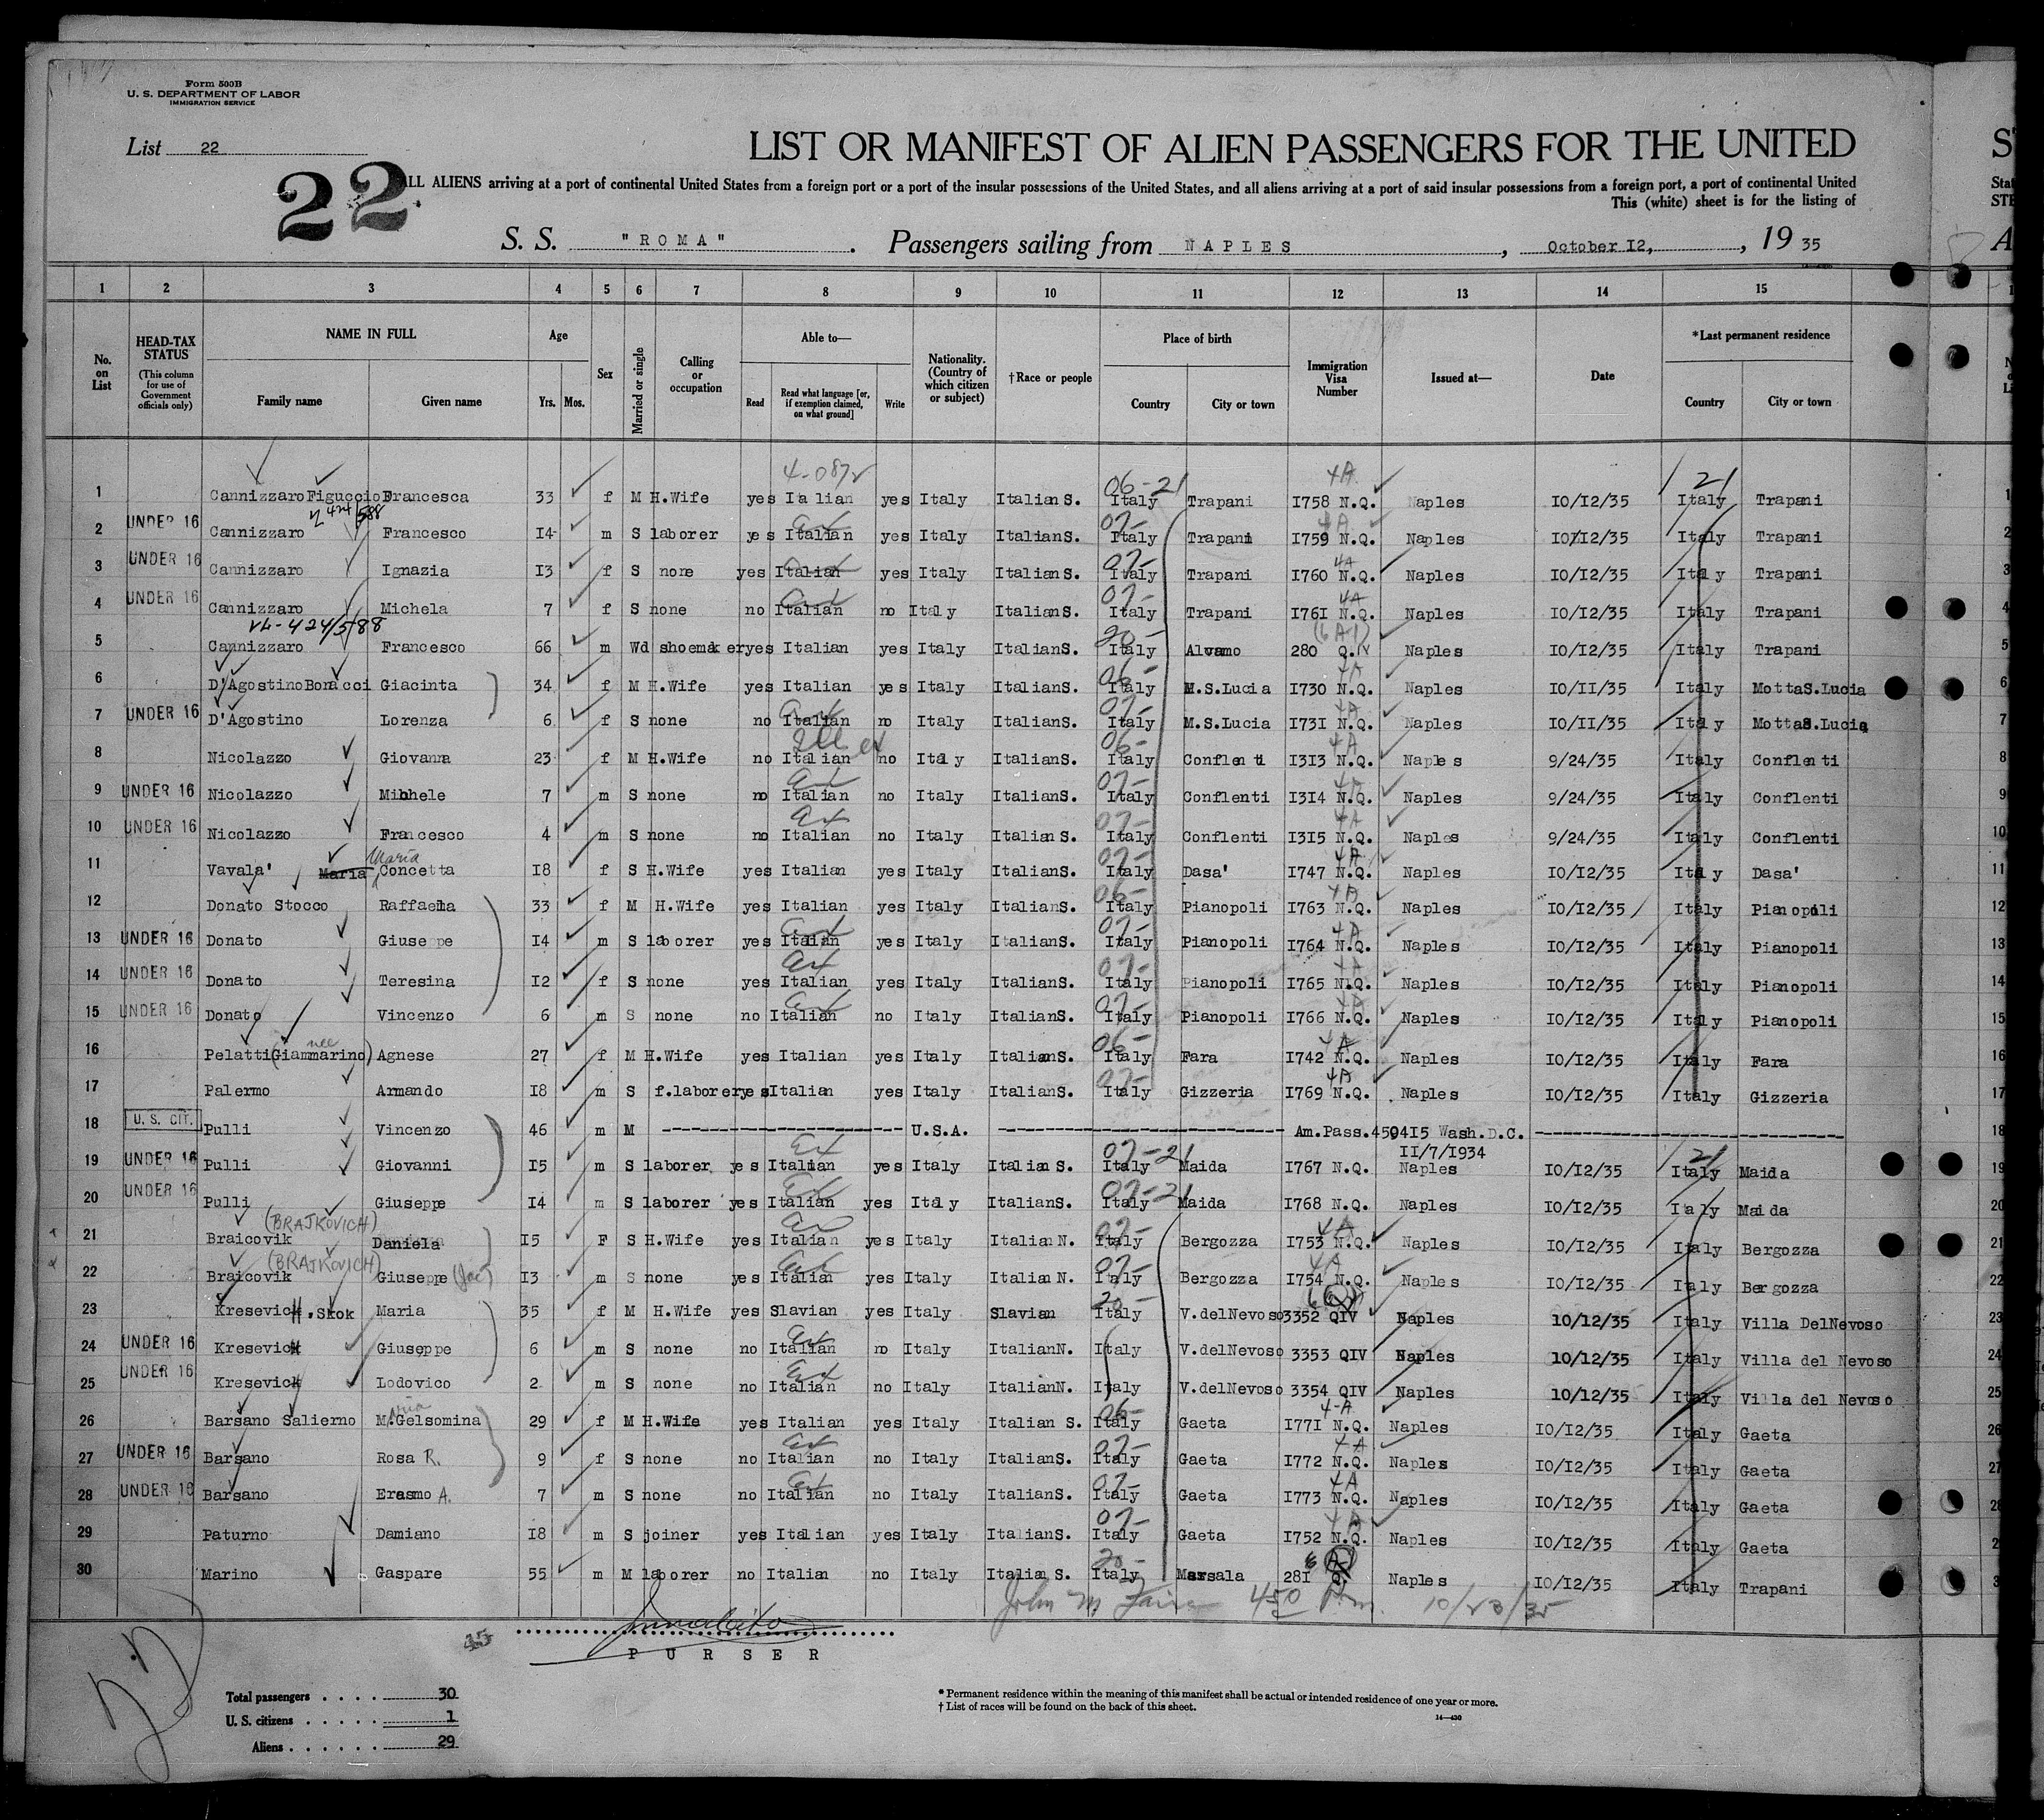 Form 500B
U. S. DEPARTMENT OF LABOR
IMMIGRATION SERVICE
List 22
22
LIST OR MANIFEST OF ALIEN PASSENGERS FOR THE UNITED
ALL ALIENS arriving at a port of continental United States from a foreign port or a port of the insular possessions of the United States, and all aliens arriving at a port of said insular possessions from a foreign port, a port of continental United
This (white) sheet is for the listing of
S. S. "ROMA" . Passengers sailing from NAPLES , October I2, , 19 35
1 2 3 4 5 6 7 8 9 10 11 12 13 14 15
No. on List
HEAD-TAX STATUS (This column for use of Government officials only)
NAME IN FULL Family name Given name
Age Yrs. Mos.
Sex
Married or single
Calling or occupation
Able to— Read Read what language [or, if exemption claimed, on what ground] Write
Nationality. (Country of which citizen or subject)
†Race or people
Place of birth Country City or town
Immigration Visa Number
Issued at—
Date
*Last permanent residence Country City or town
4-087 4A
06-21 21
1 Cannizzaro Figuccio Francesca 33 f M H.Wife yes Italian yes Italy Italian S. Italy Trapani I758 N.Q. Naples I0/I2/35 Italy Trapani
2 UNDER 16 Cannizzaro Francesco I4 m S laborer yes Italian yes Italy Italian S. 07- Italy Trapani I759 N.Q. 4A Naples I0/I2/35 Italy Trapani
3 UNDER 16 Cannizzaro Ignazia I3 f S none yes Italian yes Italy Italian S. 07- Italy Trapani I760 N.Q. 4A Naples I0/I2/35 Italy Trapani
4 UNDER 16 Cannizzaro Michela 7 f S none no Italian no Italy Italian S. 07- Italy Trapani I76I N.Q. 4A Naples I0/I2/35 Italy Trapani
424/588
5 Cannizzaro Francesco 66 m Wd shoemaker yes Italian yes Italy Italian S. 20- Italy Alcamo 280 Q. Naples I0/I2/35 Italy Trapani
6 D'Agostino Bonacci Giacinta 34 f M H.Wife yes Italian yes Italy Italian S. 06- Italy M.S.Lucia I730 N.Q. 4A Naples I0/II/35 Italy Motta S.Lucia
7 UNDER 16 D'Agostino Lorenza 6 f S none no Italian no Italy Italian S. 07- Italy M.S.Lucia I73I N.Q. 4A Naples I0/II/35 Italy Motta S.Lucia
8 Nicolazzo Giovanna 23 f M H.Wife no Italian no Italy Italian S. 06- Italy Conflenti I3I3 N.Q. 4A Naples 9/24/35 Italy Conflenti
9 UNDER 16 Nicolazzo Michele 7 m S none no Italian no Italy Italian S. 07- Italy Conflenti I3I4 N.Q. 4A Naples 9/24/35 Italy Conflenti
10 UNDER 16 Nicolazzo Francesco 4 m S none no Italian no Italy Italian S. 07- Italy Conflenti I3I5 N.Q. 4A Naples 9/24/35 Italy Conflenti
11 Vavala' Maria Maria Concetta I8 f S H.Wife yes Italian yes Italy Italian S. 07- Italy Dasa' I747 N.Q. 4A Naples I0/I2/35 Italy Dasa'
12 Donato Stocco Raffaela 33 f M H.Wife yes Italian yes Italy Italian S. 06- Italy Pianopoli I763 N.Q. 4A Naples I0/I2/35 Italy Pianopoli
13 UNDER 16 Donato Giuseppe I4 m S laborer yes Italian yes Italy Italian S. 07- Italy Pianopoli I764 N.Q. 4A Naples I0/I2/35 Italy Pianopoli
14 UNDER 16 Donato Teresina I2 f S none yes Italian yes Italy Italian S. 07- Italy Pianopoli I765 N.Q. 4A Naples I0/I2/35 Italy Pianopoli
15 UNDER 16 Donato Vincenzo 6 m S none no Italian no Italy Italian S. 07- Italy Pianopoli I766 N.Q. 4A Naples I0/I2/35 Italy Pianopoli
16 Pelatti (nee Giammarino) Agnese 27 f M H.Wife yes Italian yes Italy Italian S. 06- Italy Fara I742 N.Q. 4A Naples I0/I2/35 Italy Fara
17 Palermo Armando I8 m S f.laborer yes Italian yes Italy Italian S. 07- Italy Gizzeria I769 N.Q. 4A Naples I0/I2/35 Italy Gizzeria
18 U.S. CIT. Pulli Vincenzo 46 m M U.S.A. Am.Pass.459415 Wash.D.C.
II/7/I934
19 UNDER 16 Pulli Giovanni I5 m S laborer yes Italian yes Italy Italian S. 07-21 Italy Maida I767 N.Q. Naples I0/I2/35 21 Italy Maida
20 UNDER 16 Pulli Giuseppe I4 m S laborer yes Italian yes Italy Italian S. 07-21 Italy Maida I768 N.Q. Naples I0/I2/35 Italy Maida
(BRAJKOVICH)
21 Braicovik Daniela I5 F S H.Wife yes Italian yes Italy Italian N. 07- Italy Bergozza I753 N.Q. 4A Naples I0/I2/35 Italy Bergozza
(BRAJKOVICH)
22 Braicovik Giuseppe (Joe) I3 m S none yes Italian yes Italy Italian N. 07- Italy Bergozza I754 N.Q. 4A Naples I0/I2/35 Italy Bergozza
23 Kresevich, Skok Maria 35 f M H.Wife yes Slavian yes Italy Slavian 20- Italy V.delNevoso 3352 QIV Naples 10/12/35 Italy Villa DelNevoso
24 UNDER 16 Kresevich Giuseppe 6 m S none no Italian no Italy Italian N. Italy V.delNevoso 3353 QIV Naples 10/12/35 Italy Villa del Nevoso
25 UNDER 16 Kresevich Lodovico 2 m S none no Italian no Italy Italian N. Italy V.delNevoso 3354 QIV Naples 10/12/35 Italy Villa del Nevoso
26 Barsano Salierno M.aria Gelsomina 29 f M H.Wife yes Italian yes Italy Italian S. 06- Italy Gaeta I77I N.Q. 4-A Naples I0/I2/35 Italy Gaeta
27 UNDER 16 Barsano Rosa R. 9 f S none no Italian no Italy Italian S. 07- Italy Gaeta I772 N.Q. 4A Naples I0/I2/35 Italy Gaeta
28 UNDER 16 Barsano Erasmo A. 7 m S none no Italian no Italy Italian S. 07- Italy Gaeta I773 N.Q. 4A Naples I0/I2/35 Italy Gaeta
29 Paturno Damiano I8 m S joiner yes Italian yes Italy Italian S. 07- Italy Gaeta I752 N.Q. 4A Naples I0/I2/35 Italy Gaeta
30 Marino Gaspare 55 m M laborer no Italian no Italy Italian S. 20- Italy Marsala 28I Naples I0/I2/35 Italy Trapani
John M 450 10/23/35
PURSER
Total passengers . . . . 30
U. S. citizens . . . . . 1
Aliens . . . . . . 29
* Permanent residence within the meaning of this manifest shall be actual or intended residence of one year or more.
† List of races will be found on the back of this sheet.
14—430